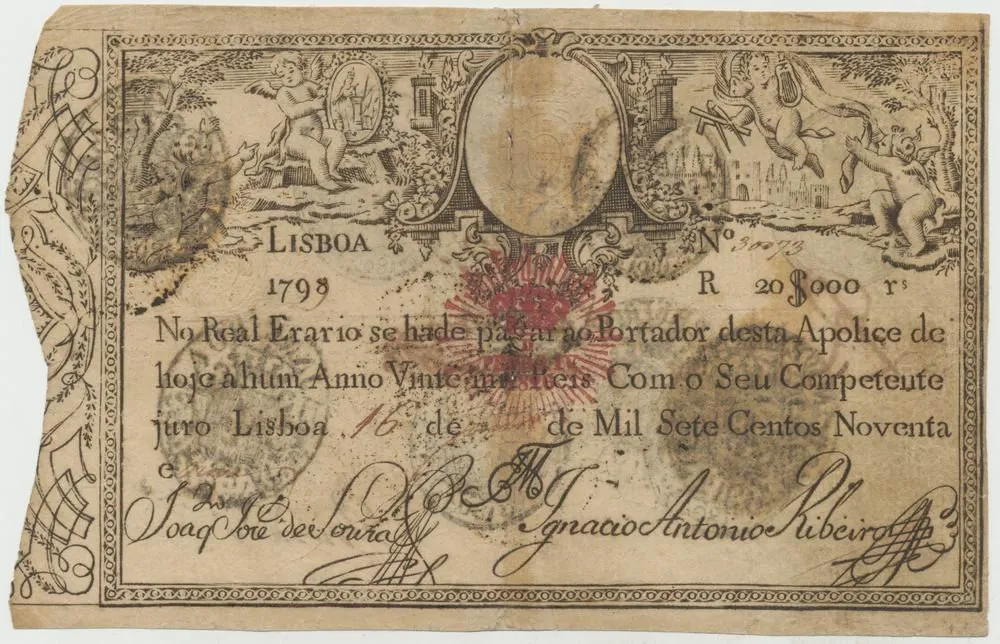 LISBOA
Nº 30073
1798
R 20$000 rs
No Real Erario se hade pagar ao Portador desta Apoliçe de
hoje a hum Anno Vinte mil Reis Com o Seu Competente
juro Lisboa 16 de de Mil Sete Centos Noventa
e
Joaqm José de Souza
Ignacio Antonio Ribeiro